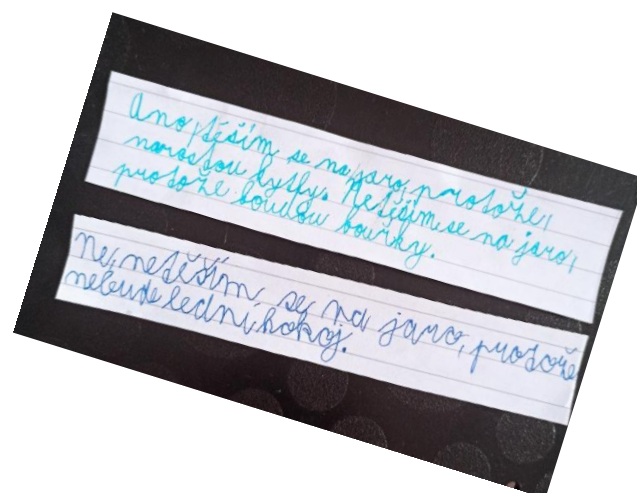 Ano, těším se na jaro, protože,
narostou kytky. Netěším se na jaro,
protože boudou bouřky.
Ne, netěším se na jaro, protože
nebude lední hokej.